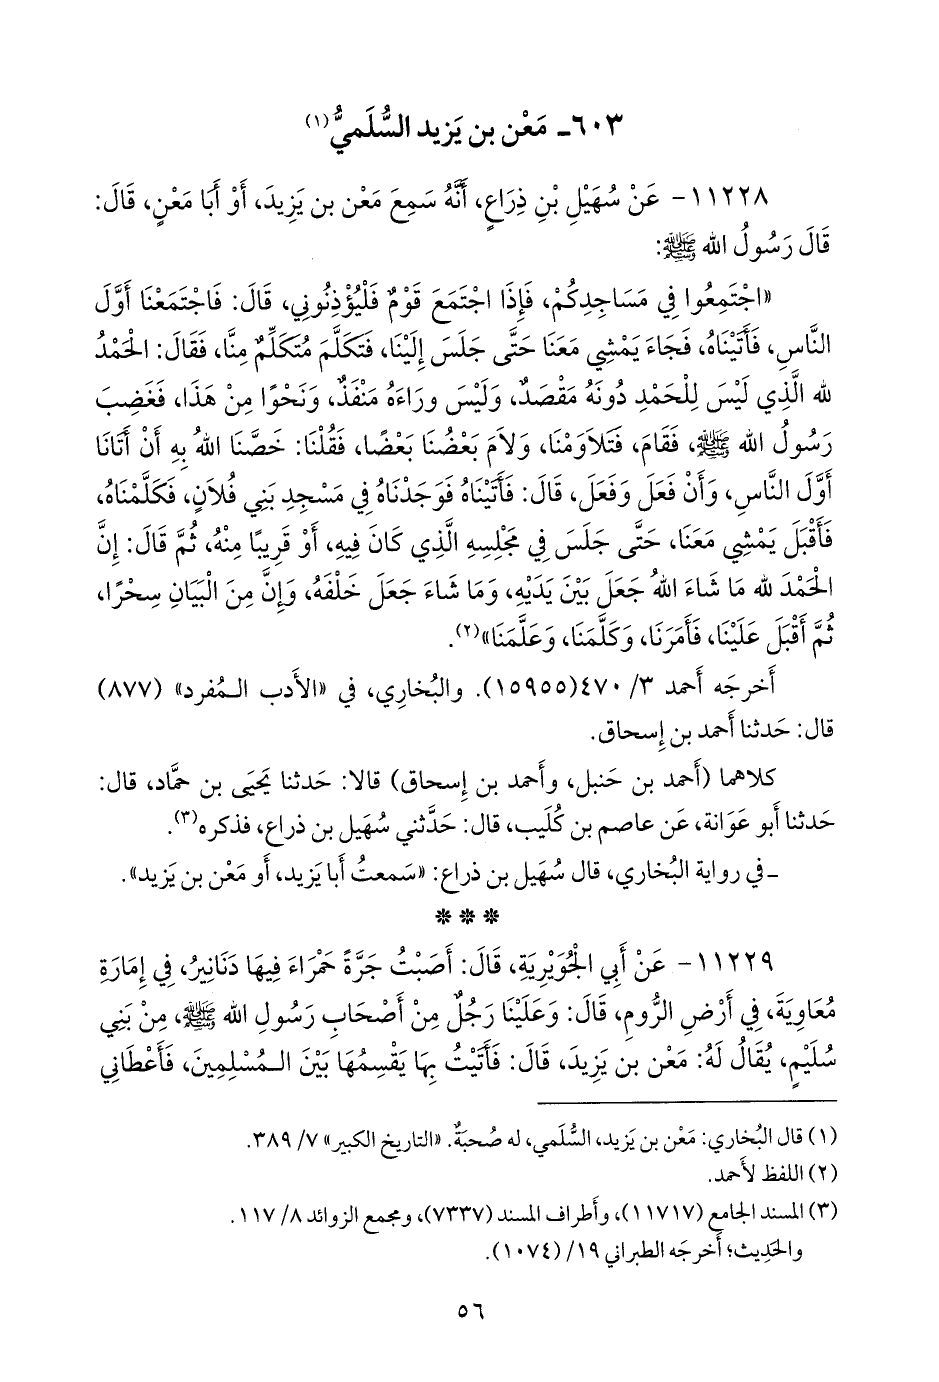 ٦٠٣ـ مَعْن بن يَزيد السُّلَميُّ(١)
١١٢٢٨ - عَنْ سُهَيْلِ بْنِ ذِرَاعٍ، أَنَّهُ سَمِعَ مَعْن بن يَزِيدَ، أَوْ أَبَا مَعْنٍ، قَالَ:
قَالَ رَسُولُ الله ﷺ:
«اجْتَمِعُوا فِي مَسَاجِدِكُمْ، فَإِذَا اجْتَمَعَ قَوْمٌ فَلْيُؤْذِنُونِي، قَالَ: فَاجْتَمَعْنَا أَوَّلَ
النَّاسِ، فَأَتَيْنَاهُ، فَجَاءَ يَمْشِي مَعَنَا حَتَّى جَلَسَ إِلَيْنَا، فَتَكَلَّمَ مُتَكَلِّمٌ مِنَّا، فَقَالَ: الْحَمْدُ
لله الَّذِي لَيْسَ لِلْحَمْدِ دُونَهُ مَقْصَدٌ، وَلَيْسَ وَرَاءَهُ مَنْفَذٌ، وَنَحْوًا مِنْ هَذَا، فَغَضِبَ
رَسُولُ الله ﷺ، فَقَامَ، فَتَلَاوَمْنَا، وَلَامَ بَعْضُنَا بَعْضًا، فَقُلْنَا: خَصَّنَا اللهُ بِهِ أَنْ أَتَانَا
أَوَّلَ النَّاسِ، وَأَنْ فَعَلَ وَفَعَلَ، قَالَ: فَأَتَيْنَاهُ فَوَجَدْنَاهُ فِي مَسْجِدِ بَنِي فُلَانٍ، فَكَلَّمْنَاهُ،
فَأَقْبَلَ يَمْشِي مَعَنَا، حَتَّى جَلَسَ فِي مَجْلِسِهِ الَّذِي كَانَ فِيهِ، أَوْ قَرِيبًا مِنْهُ، ثُمَّ قَالَ: إِنَّ
الْحَمْدَ لله مَا شَاءَ اللهُ جَعَلَ بَيْنَ يَدَيْهِ، وَمَا شَاءَ جَعَلَ خَلْفَهُ، وَإِنَّ مِنَ الْبَيَانِ سِحْرًا،
ثُمَّ أَقْبَلَ عَلَيْنَا، فَأَمَرَنَا، وَكَلَّمَنَا، وَعَلَّمَنَا»(٢).
أَخرجَه أَحمد ٣/ ٤٧٠(١٥٩٥٥). والبُخاري، في «الأَدب الـمُفرد» (٨٧٧)
قال: حَدثنا أَحمد بن إِسحاق.
كلاهما (أَحمد بن حَنبل، وأَحمد بن إِسحاق) قالا: حَدثنا يَحيَى بن حَمَّاد، قال:
حَدثنا أَبو عَوَانة، عَن عاصم بن كُلَيب، قال: حَدَّثني سُهَيل بن ذراع، فذكره(٣).
ـ في رواية البُخاري، قال سُهَيل بن ذراع: «سَمعتُ أَبا يَزيد، أَو مَعْن بن يَزيد».
***
١١٢٢٩ - عَنْ أَبِي الْجُوَيْرِيَةِ، قَالَ: أَصَبْتُ جَرَّةً حَمْرَاءَ فِيهَا دَنَانِيرُ، فِي إِمَارَةِ
مُعَاوِيَةَ، فِي أَرْضِ الرُّومِ، قَالَ: وَعَلَيْنَا رَجُلٌ مِنْ أَصْحَابِ رَسُولِ الله ﷺ، مِنْ بَنِي
سُلَيْمٍ، يُقَالُ لَهُ: مَعْن بن يَزِيدَ، قَالَ: فَأَتَيْتُ بِهَا يَقْسِمُهَا بَيْنَ الـمُسْلِمِينَ، فَأَعْطَانِي
(١) قال البُخاري: مَعْن بن يَزيد، السُّلَمي، له صُحبَةٌ. «التاريخ الكبير» ٧/ ٣٨٩.
(٢) اللفظ لأَحمد.
(٣) المسند الجامع (١١٧١٧)، وأَطراف المسند (٧٣٣٧)، ومجمع الزوائد ٨/ ١١٧.
والحَدِيث؛ أَخرجَه الطبراني ١٩/ (١٠٧٤).
٥٦